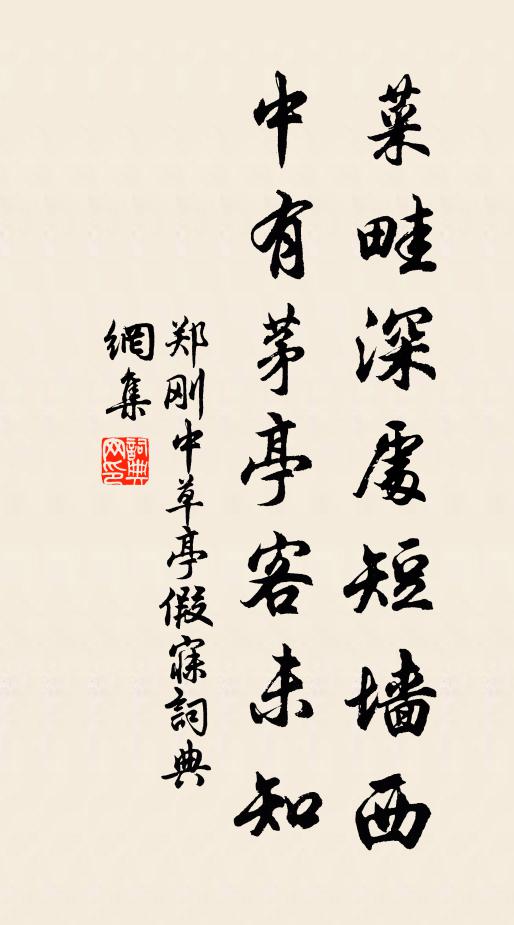 菜畦深處短墙西
中有茅亭客未知
郑刚中草亭假寐詞典
網集
詞典網印